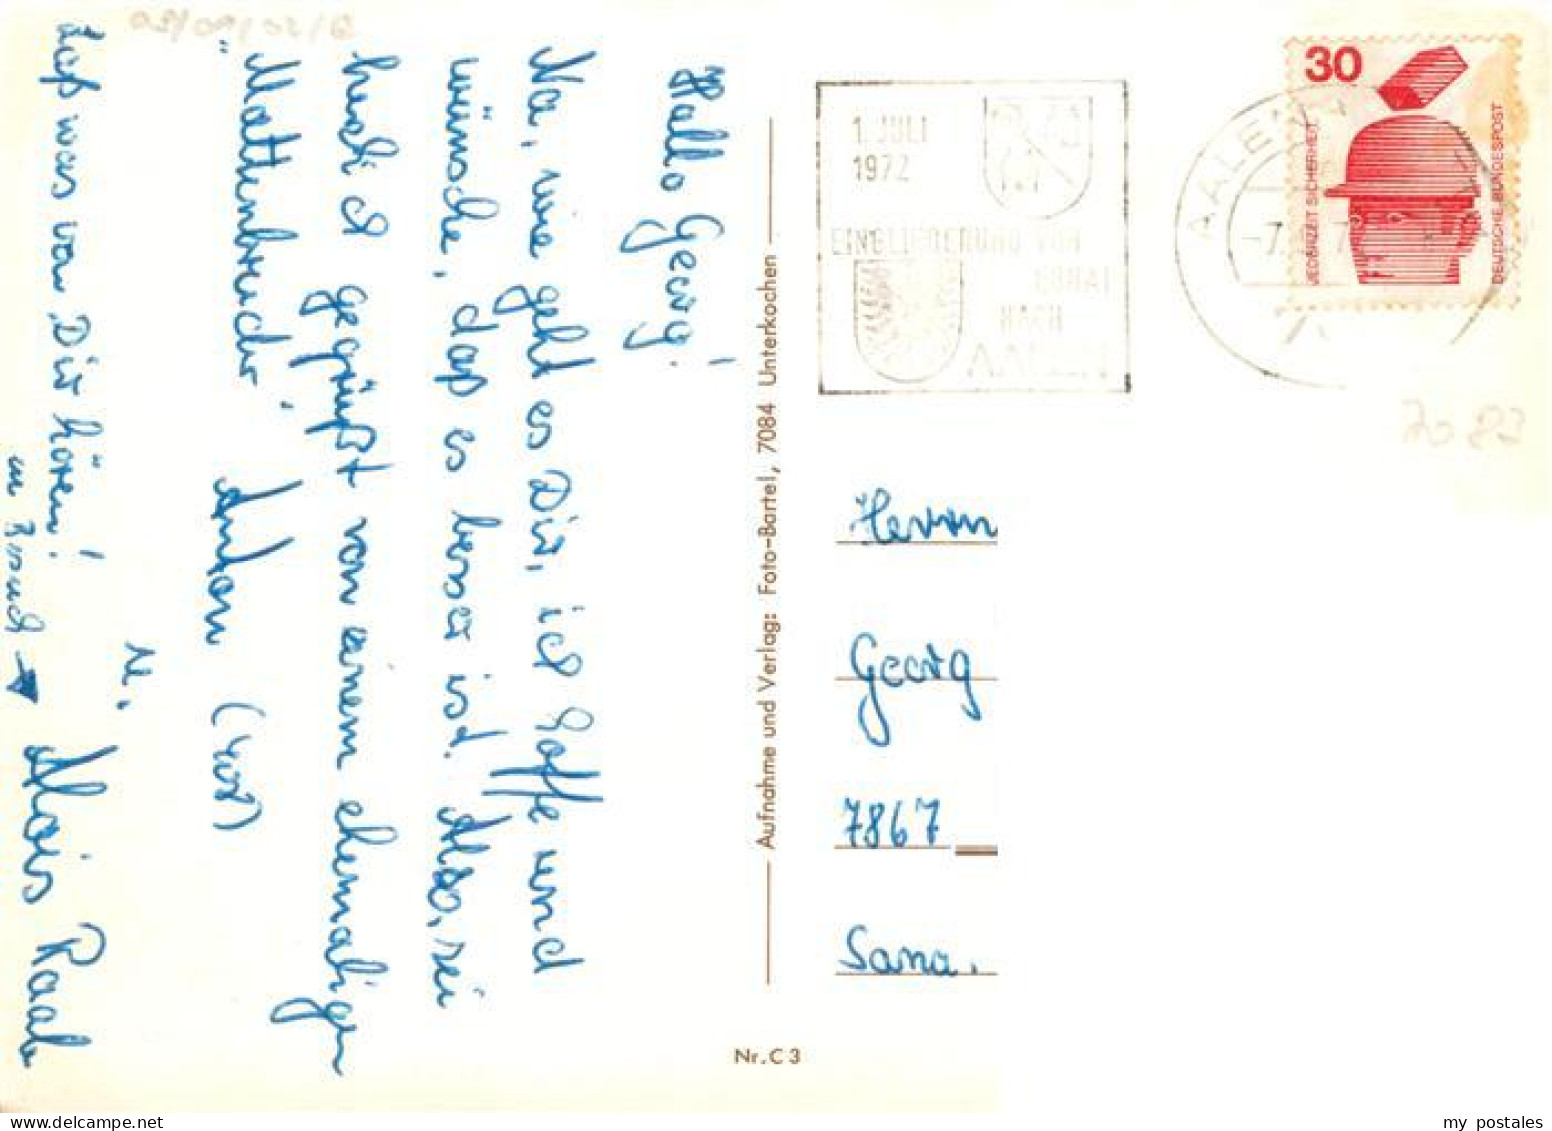 Hallo Georg!
Na, wie geht es Dir, ich hoffe und
wünsche, daß es besser ist. Also, sei
herzl. gegrüßt von einem ehemaligen
"Mattenbruder"
Anton
Laß was von Dir hören!
u.
Alois Raab
Aufnahme und Verlag: Foto-Bartel, 7084 Unterkochen
Nr. C 3
1. JULI
1972
EINGLIEDERUNG VON
NACH
AALEN
AALEN
30
JEDERZEIT SICHERHEIT
DEUTSCHE BUNDESPOST
7083
Herrn
Georg
7867
Sana.
my postales